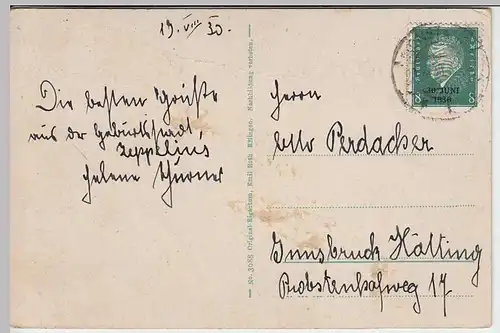 19. VIII 30.
Die besten Grüße
aus der Geburtsstadt,
Zeppelins
Helene Thurner
No. 3088 Original-Eigentum, Emil Hoth, Ettlingen. Nachbildung verboten.
30. JUNI
1930
8 8
Herrn
Otto Perdacher
Innsbruck Hötting
Probstenhofweg 17